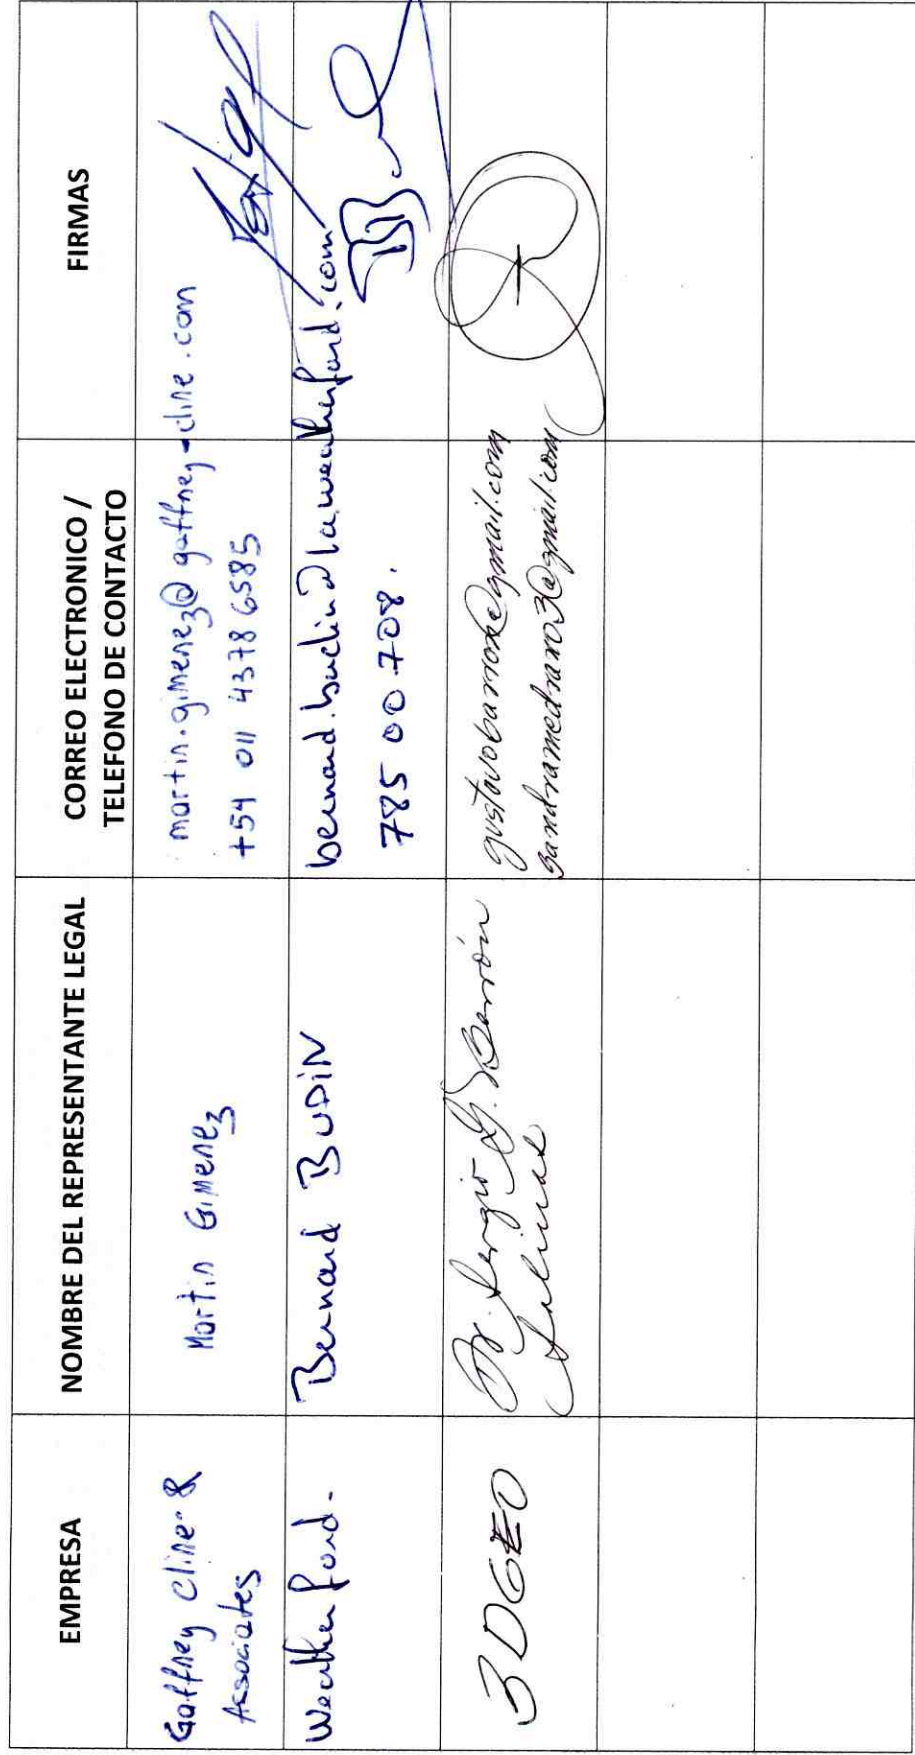 EMPRESA
NOMBRE DEL REPRESENTANTE LEGAL
CORREO ELECTRONICO /
TELEFONO DE CONTACTO
FIRMAS
Gaffney Cline &
Associates
Martin Gimenez
martin.gimenez@gaffney-cline.com
+54 011 4378 6585
Weatherford.
Bernard BUDIN
bernard.budin@la.weatherford.com
785 00 708.
3DGEO
Dr. Sergio G. Barrón
Salinas
gustavobarron@gmail.com
sandramedrano3@gmail.com